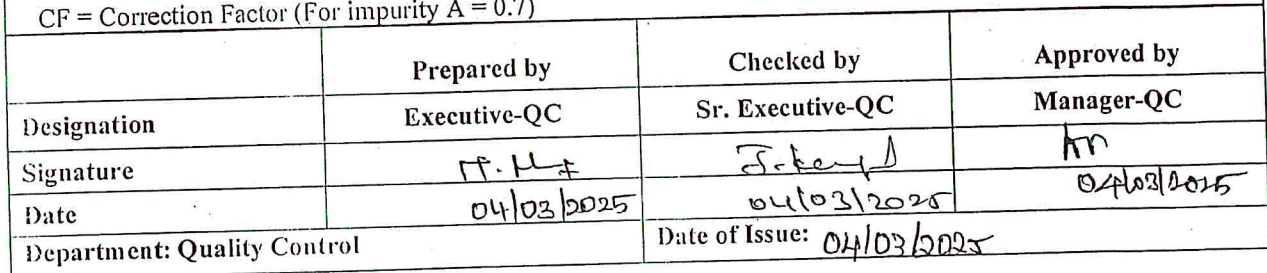 CF = Correction Factor (For impurity A = 0.7)
Prepared by Checked by Approved by
Designation Executive-QC Sr. Executive-QC Manager-QC
Signature
Date 04/03/2025 04/03/2025 04/03/2025
Department: Quality Control Date of Issue: 04/03/2025